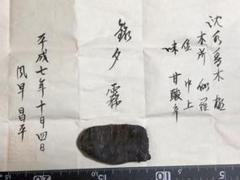 沈香木
木所 伽羅
位 中上
味 甘酸辛
銘 夕霧
平成七年十月四日
風早昌平